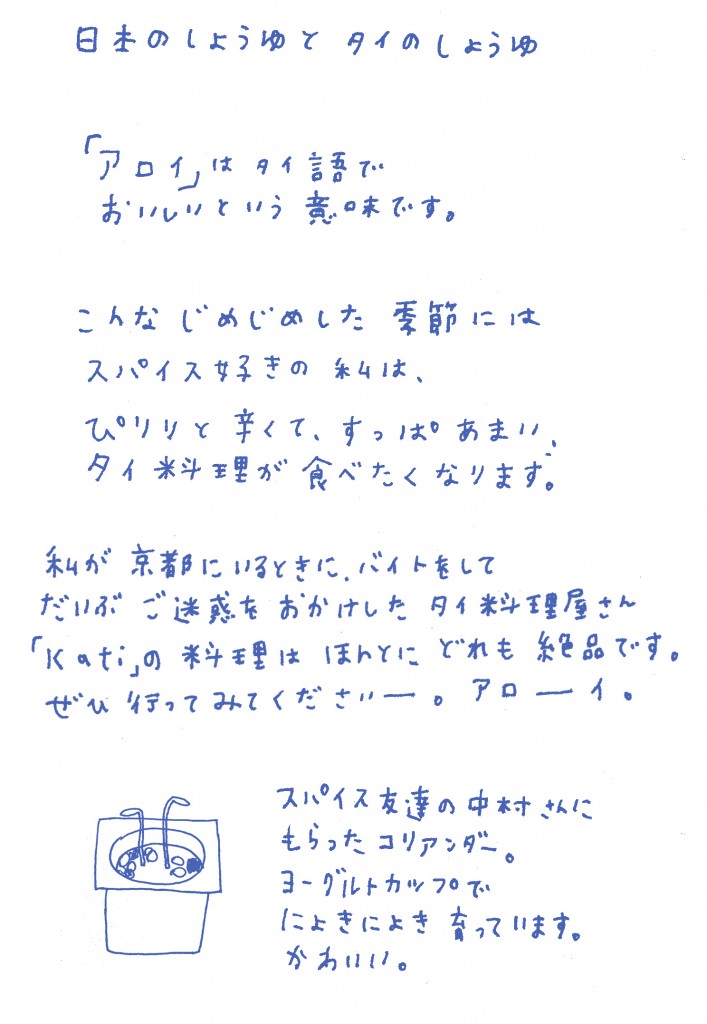 日本のしょうゆと タイのしょうゆ
「アロイ」は タイ語で
おいしいという 意味です。
こんな じめじめした 季節には
スパイス好きの 私は、
ぴりりと 辛くて、すっぱ あまい、
タイ料理が 食べたくなります。
私が 京都にいるときに、バイトをして
だいぶ ご迷惑を おかけした タイ料理屋さん
「Kati」の 料理は ほんとに どれも 絶品です。
ぜひ 行ってみてくださいー。アローイ。
スパイス友達の中村さんに
もらった コリアンダー。
ヨーグルトカップで
にょきにょき 育っています。
かわいい。